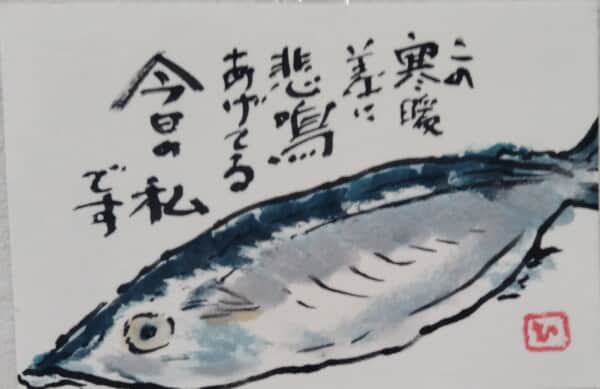 この
寒暖
差に
悲鳴
あげてる
今日の私
です
ひ